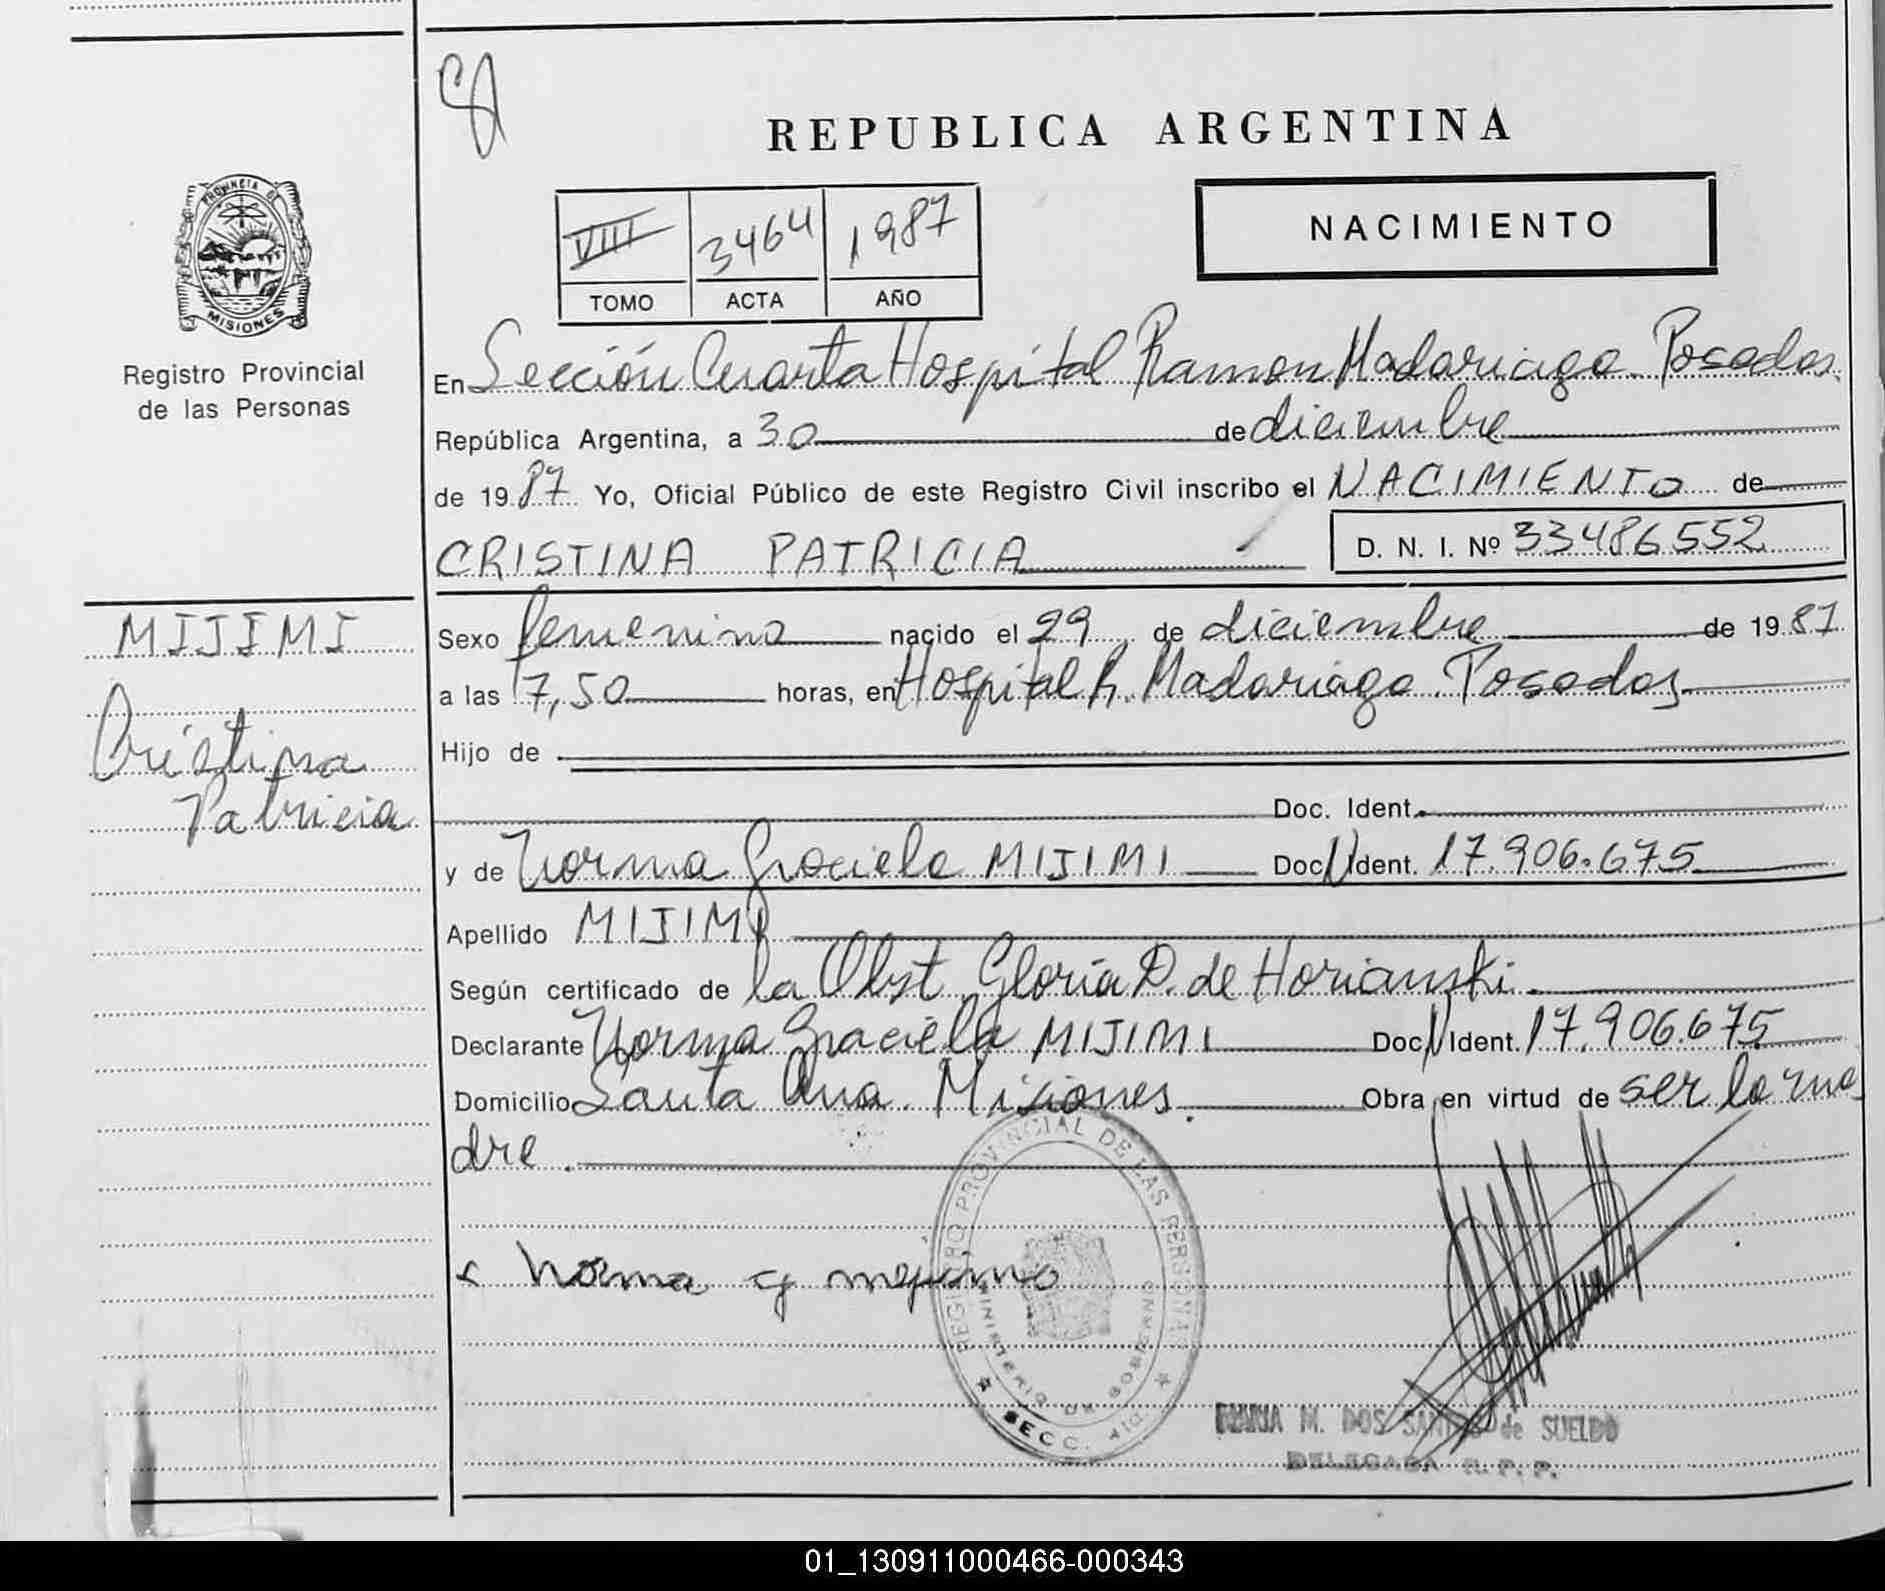 REPUBLICA ARGENTINA
VIII 3464 1987
TOMO ACTA AÑO
NACIMIENTO
PROVINCIA DE
MISIONES
Registro Provincial
de las Personas
En Sección Cuarta Hospital Ramon Madariaga. Posadas.
República Argentina, a 30 de diciembre
de 1987 Yo, Oficial Público de este Registro Civil inscribo el NACIMIENTO de
CRISTINA PATRICIA D. N. I. Nº 33486552
MIJIMI
Cristina
Patricia
Sexo femenino nacido el 29 de diciembre de 1987
a las 17,50 horas, en Hospital R. Madariaga. Posadas
Hijo de
Doc. Ident.
y de Norma Graciela MIJIMI Doc. Ident. 17.906.675
Apellido MIJIMI
Según certificado de la Obst Gloria D. de Horianski.
Declarante Norma Graciela MIJIMI Doc. Ident. 17.906.675
Domicilio Santa Ana. Misiones. Obra en virtud de ser la ma
dre.
REGISTRO PROVINCIAL DE LAS PERSONAS
MINISTERIO DE GOBIERNO
SECC. 4ta
Norma g mijimo
MARIA M. DOS SANTOS de SUELDO
DELEGADA R. P. P.
01_130911000466-000343